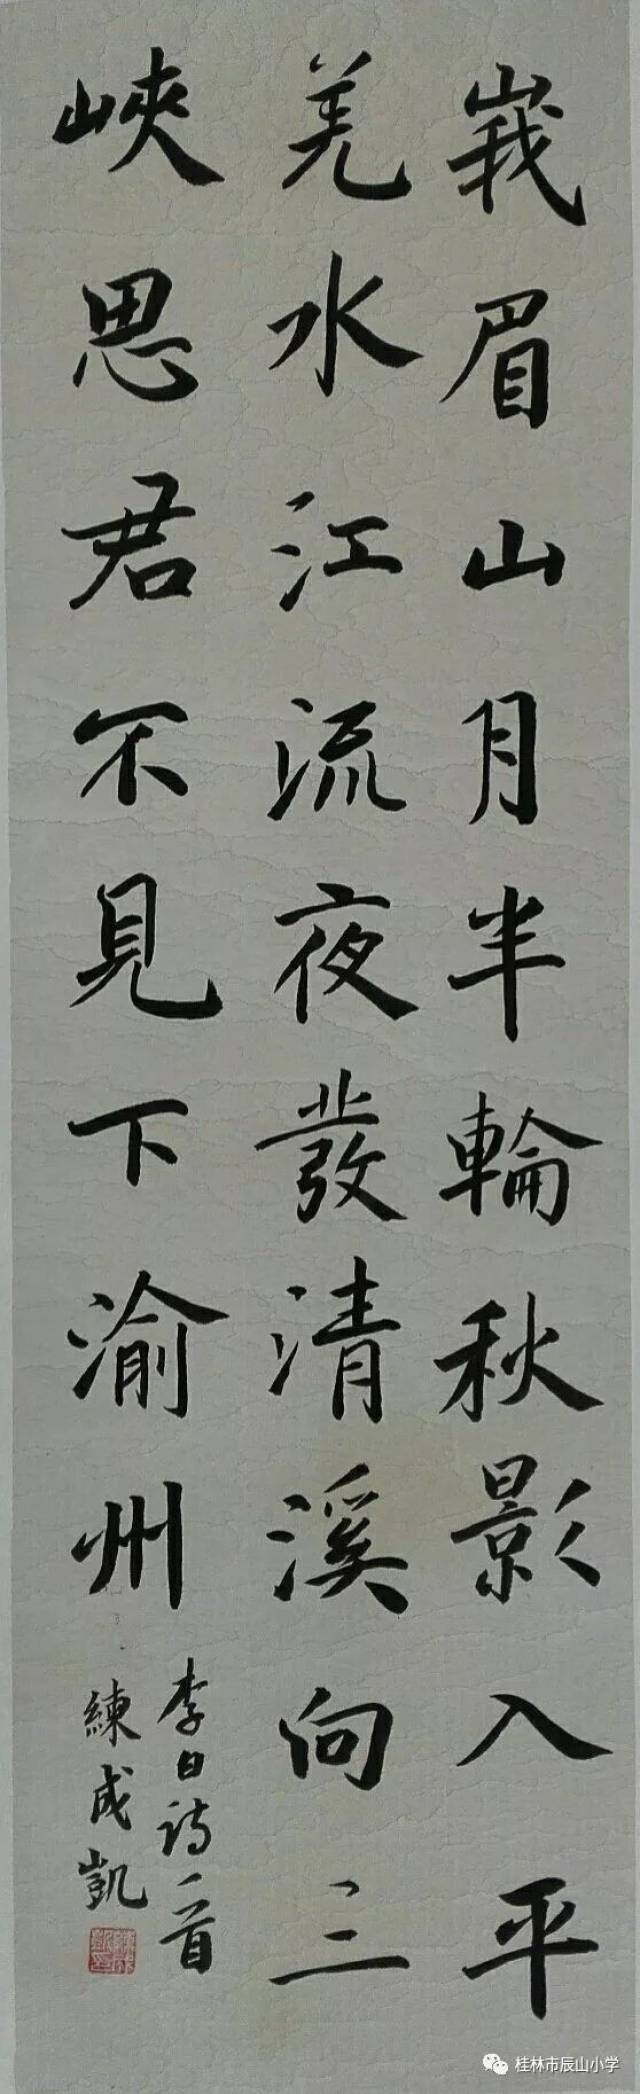 峩眉山月半輪秋影入平
羌水江流夜發清溪向三
峽思君不見下渝州
李白詩一首
練成凱
桂林市辰山小学